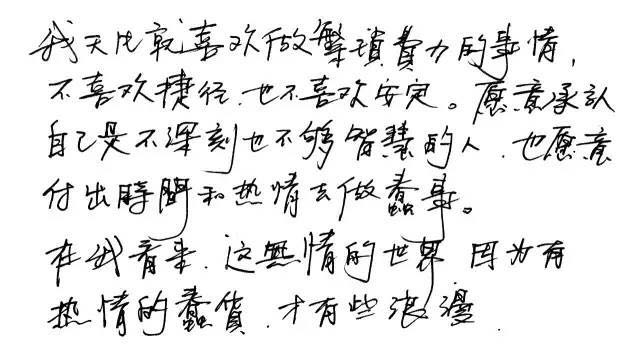 我天比就喜欢做繁琐費力的事情,
不喜欢捷径.也不喜欢安定。愿意承認
自己是不深刻也不够智慧的人.也愿意
付出時間和热情去做蠢事。
在我看来.这無情的世界因为有
热情的蠢貨.才有些浪漫.